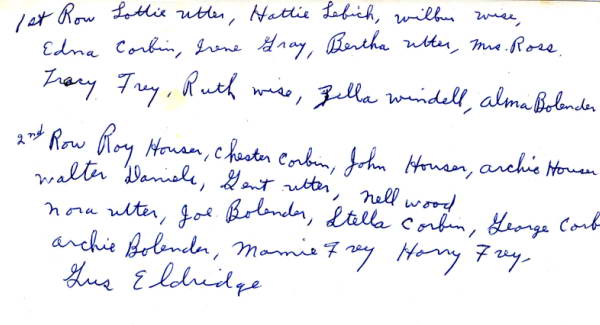 1st Row Lottie Utter, Hattie Lebich, Wilbur Wise,
Edna Corbin, Irene Gray, Bertha Utter, Mrs. Ross.
Tracy Frey, Ruth Wise, Zella Windell, Alma Bolender
2nd Row Roy Houser, Chester Corbin, John Houser, Archie Houser
Walter Daniels, Gent Utter, Nell Wood
Nora Utter, Joe Bolender, Stella Corbin, George Corb
Archie Bolender, Mamie Frey Harry Frey,
Gus Eldridge